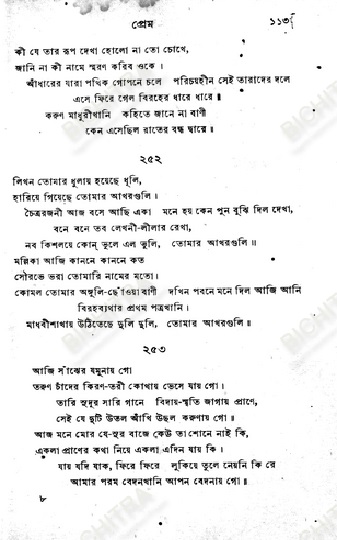 প্রেম
১১৩
কী যে তার রূপ দেখা হোলো না তো চোখে,
জানি না কী নামে স্মরণ করিব ওকে ।
আঁধারের যারা পথিক গোপনে চলে পরিচয়হীন সেই তারাদের দলে
এসে ফিরে গেল বিরহের ধারে ধারে ॥
করুণ মাধুরীখানি কহিতে জানে না বাণী
কেন এসেছিল রাতের বন্ধ দ্বারে ॥
২৫২
লিখন তোমার ধুলায় হয়েছে ধূলি,
হারিয়ে গিয়েছে তোমার আখরগুলি ।
চৈত্ররজনী আজ বসে আছি একা মনে হয় কেন পুন বুঝি দিল দেখা,
বনে বনে তব লেখনী-লীলার রেখা,
নব কিশলয়ে কোন্ ভুলে এল ভুলি, তোমার আখরগুলি ॥
মল্লিকা আজি কাননে কাননে কত
সৌরভে ভরা তোমারি নামের মতো ।
কোমল তোমার অঙ্গুলি-ছোঁওয়া বাণী দখিন পবনে মনে দিল আজি আনি
বিরহব্যথার প্রথম পত্রখানি ।
মাধবীশাখায় উঠিতেছে দুলি দুলি, তোমার আখরগুলি ॥
২৫৩
আজি সাঁঝের যমুনায় গো
তরুণ চাঁদের কিরণ-তরী কোথায় ভেসে যায় গো ।
তারি সুদূর সারি গানে বিদায়-স্মৃতি জাগায় প্রাণে,
সেই যে দুটি উতল আঁখি উছল করুণায় গো ।
আজ মনে মোর যে-সুর বাজে কেউ তা শোনে নাই কি,
একলা প্রাণের কথা নিয়ে একলা এদিন যায় কি ।
যায় যদি যাক, ফিরে ফিরে লুকিয়ে তুলে নেয়নি কি রে
আমার পরম বেদনখানি আপন বেদনায় গো ॥
৮
BICHITRA